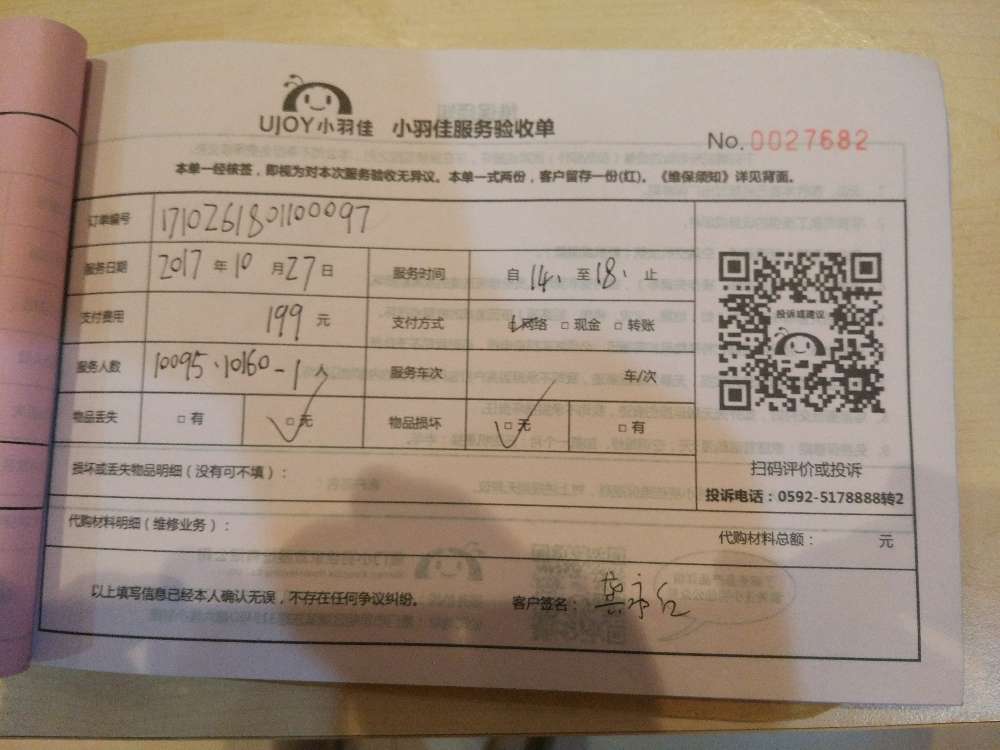 UJOY小羽佳 小羽佳服务验收单
No. 0027682
本单一经核签，即视为对本次服务验收无异议。本单一式两份，客户留存一份(红)。《维保须知》详见背面。
订单编号 171026180110097
服务日期 2017 年 10 月 27 日 服务时间 自 14: 至 18: 止
支付费用 199 元 支付方式 网络 □ 现金 □ 转账
服务人数 10095.10160-1 人 服务车次 车/次
物品丢失 □ 有 □ 无 物品损坏 □ 无 □ 有
投诉或建议
扫码评价或投诉
投诉电话：0592-5178888转2
损坏或丢失物品明细（没有可不填）：
代购材料明细（维修业务）：
代购材料总额： 元
以上填写信息已经本人确认无误，不存在任何争议纠纷。 客户签名：